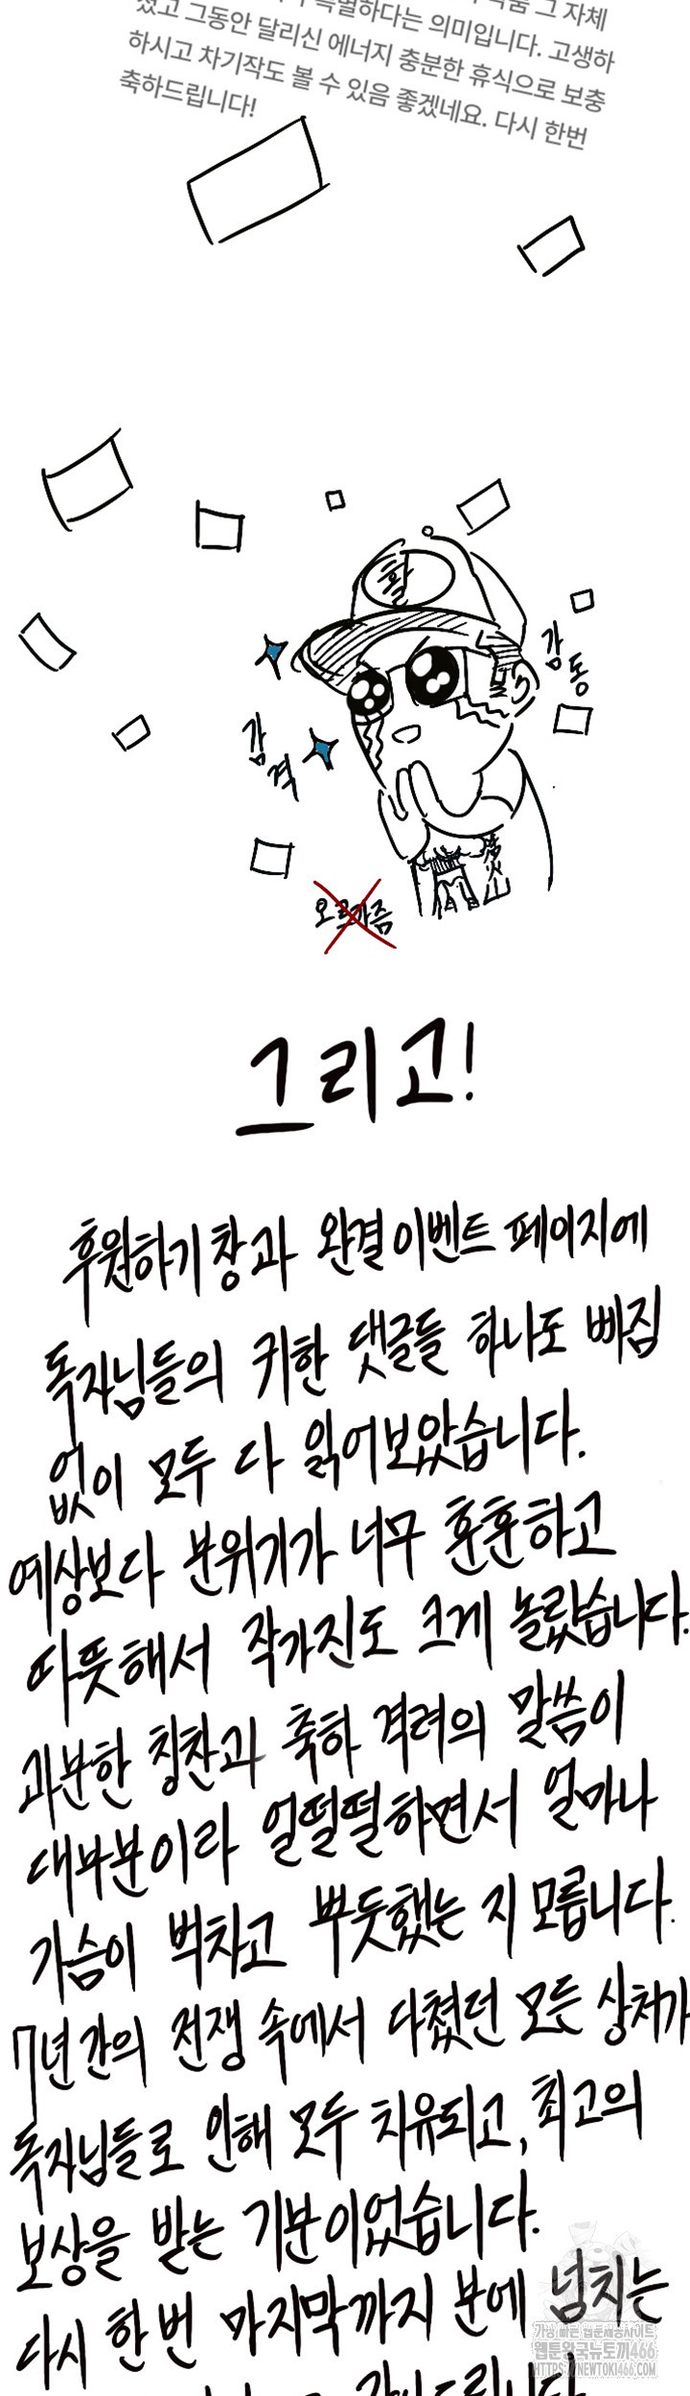 특별하다는 의미입니다. 고생하
셨고 그동안 달리신 에너지 충분한 휴식으로 보충
하시고 차기작도 볼 수 있음 좋겠네요. 다시 한번
축하드립니다!
활
감동
감격
오르가즘
그리고!
후원하기 창과 완결이벤트 페이지에
독자님들의 귀한 댓글들 하나도 빠짐
없이 모두 다 읽어보았습니다.
예상보다 분위기가 너무 훈훈하고
따뜻해서 작가진도 크게 놀랐습니다.
과분한 칭찬과 축하 격려의 말씀이
대부분이라 얼떨떨하면서 얼마나
가슴이 벅차고 뿌듯했는 지 모릅니다.
7년간의 전쟁 속에서 다쳤던 모든 상처가
독자님들로 인해 모두 치유되고, 최고의
보상을 받는 기분이었습니다.
다시 한번 마지막까지 분에 넘치는
가장 빠른 웹툰제공사이트
웹툰왕국뉴토끼466
HTTPS://NEWTOKI466.COM